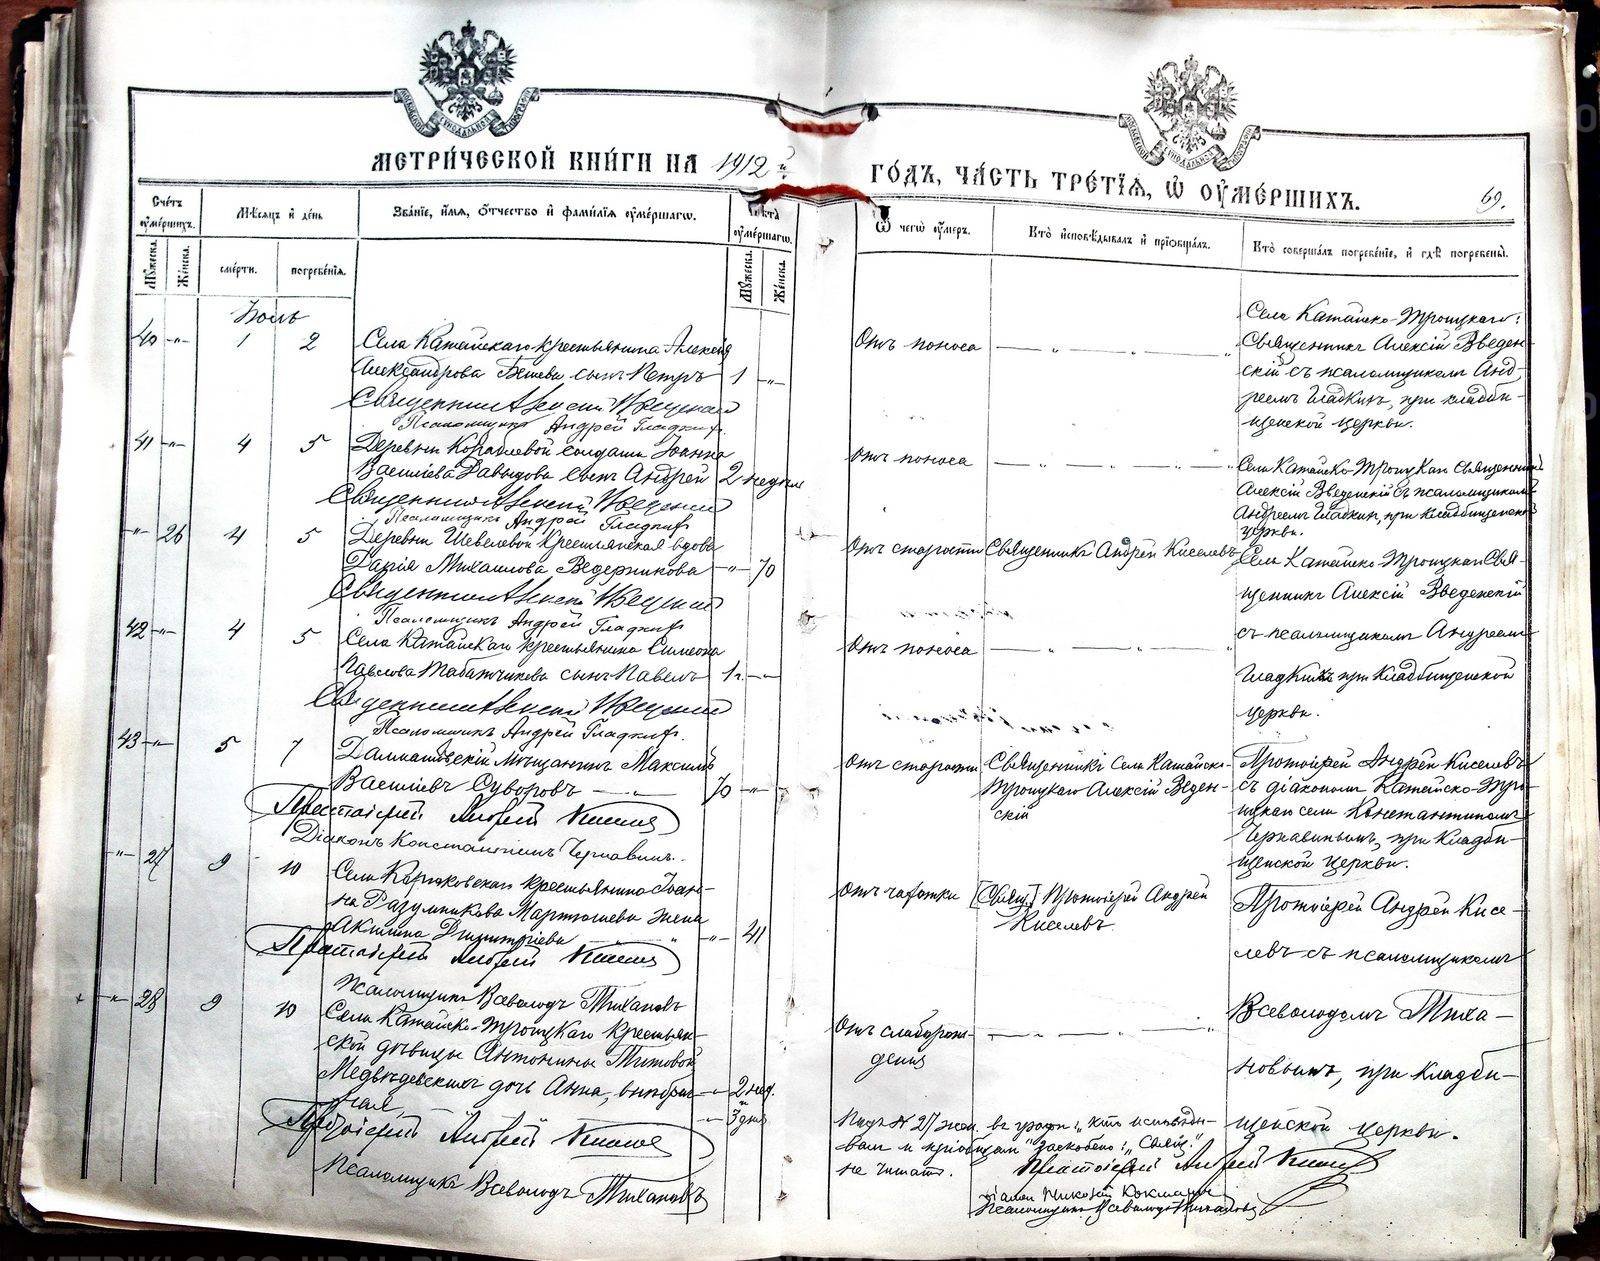 МЕТРИ́ЧЕСКОЙ КНИ́ГИ НА 1912 й ГО́ДЪ, ЧА́СТЬ ТРЕ́ТІѦ, Ѡ ОУМЕ́РШИХЪ.
69.
Сче́тъ оуме́ршихъ.
Мѣ́сяцъ и де́нь
Зва́ніе, и́мя, о́тчество и фами́лія оуме́ршагѡ.
Лѣта оуме́ршагѡ.
Мꙋжеска.
Же́нска.
сме́рти.
погребе́нія.
Мꙋжеска.
Же́нска.
Ѿ чегѡ̀ оу́меръ.
Кто̀ исповѣ́дывалъ и пріобща́лъ.
Кто̀ соверша́лъ погребе́ніе, и гдѣ̀ погребены̀.
Іюль
40 -"- 1 2
Села Катайскаго крестьянина Алексѣя
Александрова сынъ Петръ 1 -"-
Священникъ Алексій Введенскій
Псаломщикъ Андрей Гладкихъ.
Отъ поноса
Села Катайско-Троицкаго:
Священникъ Алексій Введен-
скій съ псаломщикомъ Анд-
реемъ Гладкихъ, при кладби-
щенской церкви.
41 -"- 4 5
Деревни Кораблевой солдата Іоанна
Василіева Давыдова сынъ Андрей 2 недѣли
Священникъ Алексій Введенскій
Псаломщикъ Андрей Гладкихъ
Отъ поноса
Села Катайско-Троицкаго Священникъ
Алексій Введенскій съ псаломщикомъ
Андреемъ Гладкихъ, при кладбищенской
церкви.
-"- 26 4 5
Деревни Шевелевой крестьянская вдова
Дарія Михаилова Ведерникова -"- 70
Священникъ Алексій Введенскій
Псаломщикъ Андрей Гладкихъ
Отъ старости
Священникъ Андрей Киселевъ
Села Катайско-Троицкаго Свя-
щенникъ Алексій Введенскій
съ псаломщикомъ Андреемъ
Гладкихъ при кладбищенской
церкви.
42 -"- 4 5
Села Катайскаго крестьянина Симеона
Павлова Табатчикова сынъ Павелъ 1 г. -"-
Священникъ Алексій Введенскій
Псаломщикъ Андрей Гладкихъ.
Отъ поноса
43 -"- 5 7
Далматовскій мѣщанинъ Максимъ
Василіевъ Суворовъ 70 -"-
Протоіерей Андрей Киселевъ
Діаконъ Константинъ Чернавинъ.
Отъ старости
Священникъ Села Катайско-
Троицкаго Алексій Введен-
скій
Протоіерей Андрей Киселевъ
съ діакономъ Катайско-Тро-
ицкаго села Константиномъ
Чернавинымъ, при кладби-
щенской церкви.
-"- 27 9 10
Села крестьянина Іоан-
на Разумникова Мартюшева жена
Акилина Димитріева -"- 41
Протоіерей Андрей Киселевъ
Псаломщикъ Всеволодъ Тихановъ
Отъ чахотки
[Свящ.] Протоіерей Андрей
Киселевъ.
Протоіерей Андрей Кисе-
левъ съ псаломщикомъ
Всеволодомъ Тиха-
новымъ, при кладби-
щенской церкви.
+ -"- 28 9 10
Села Катайско-Троицкаго крестьян-
ской дѣвицы Антонины Титовой
Медвѣдевскихъ дочь Анна, внѣбрач-
ная, -"- 2 нед. и 3 дня
Протоіерей Андрей Киселевъ
Псаломщикъ Всеволодъ Тихановъ
Отъ слаборож-
денія
Подъ № 27 жен. въ графѣ: "кто исповѣды-
валъ и пріобщалъ" заскоблено: "Свящ."
не читать. Протоіерей Андрей Киселевъ
Діаконъ Николай
Псаломщикъ Всеволодъ Тихановъ